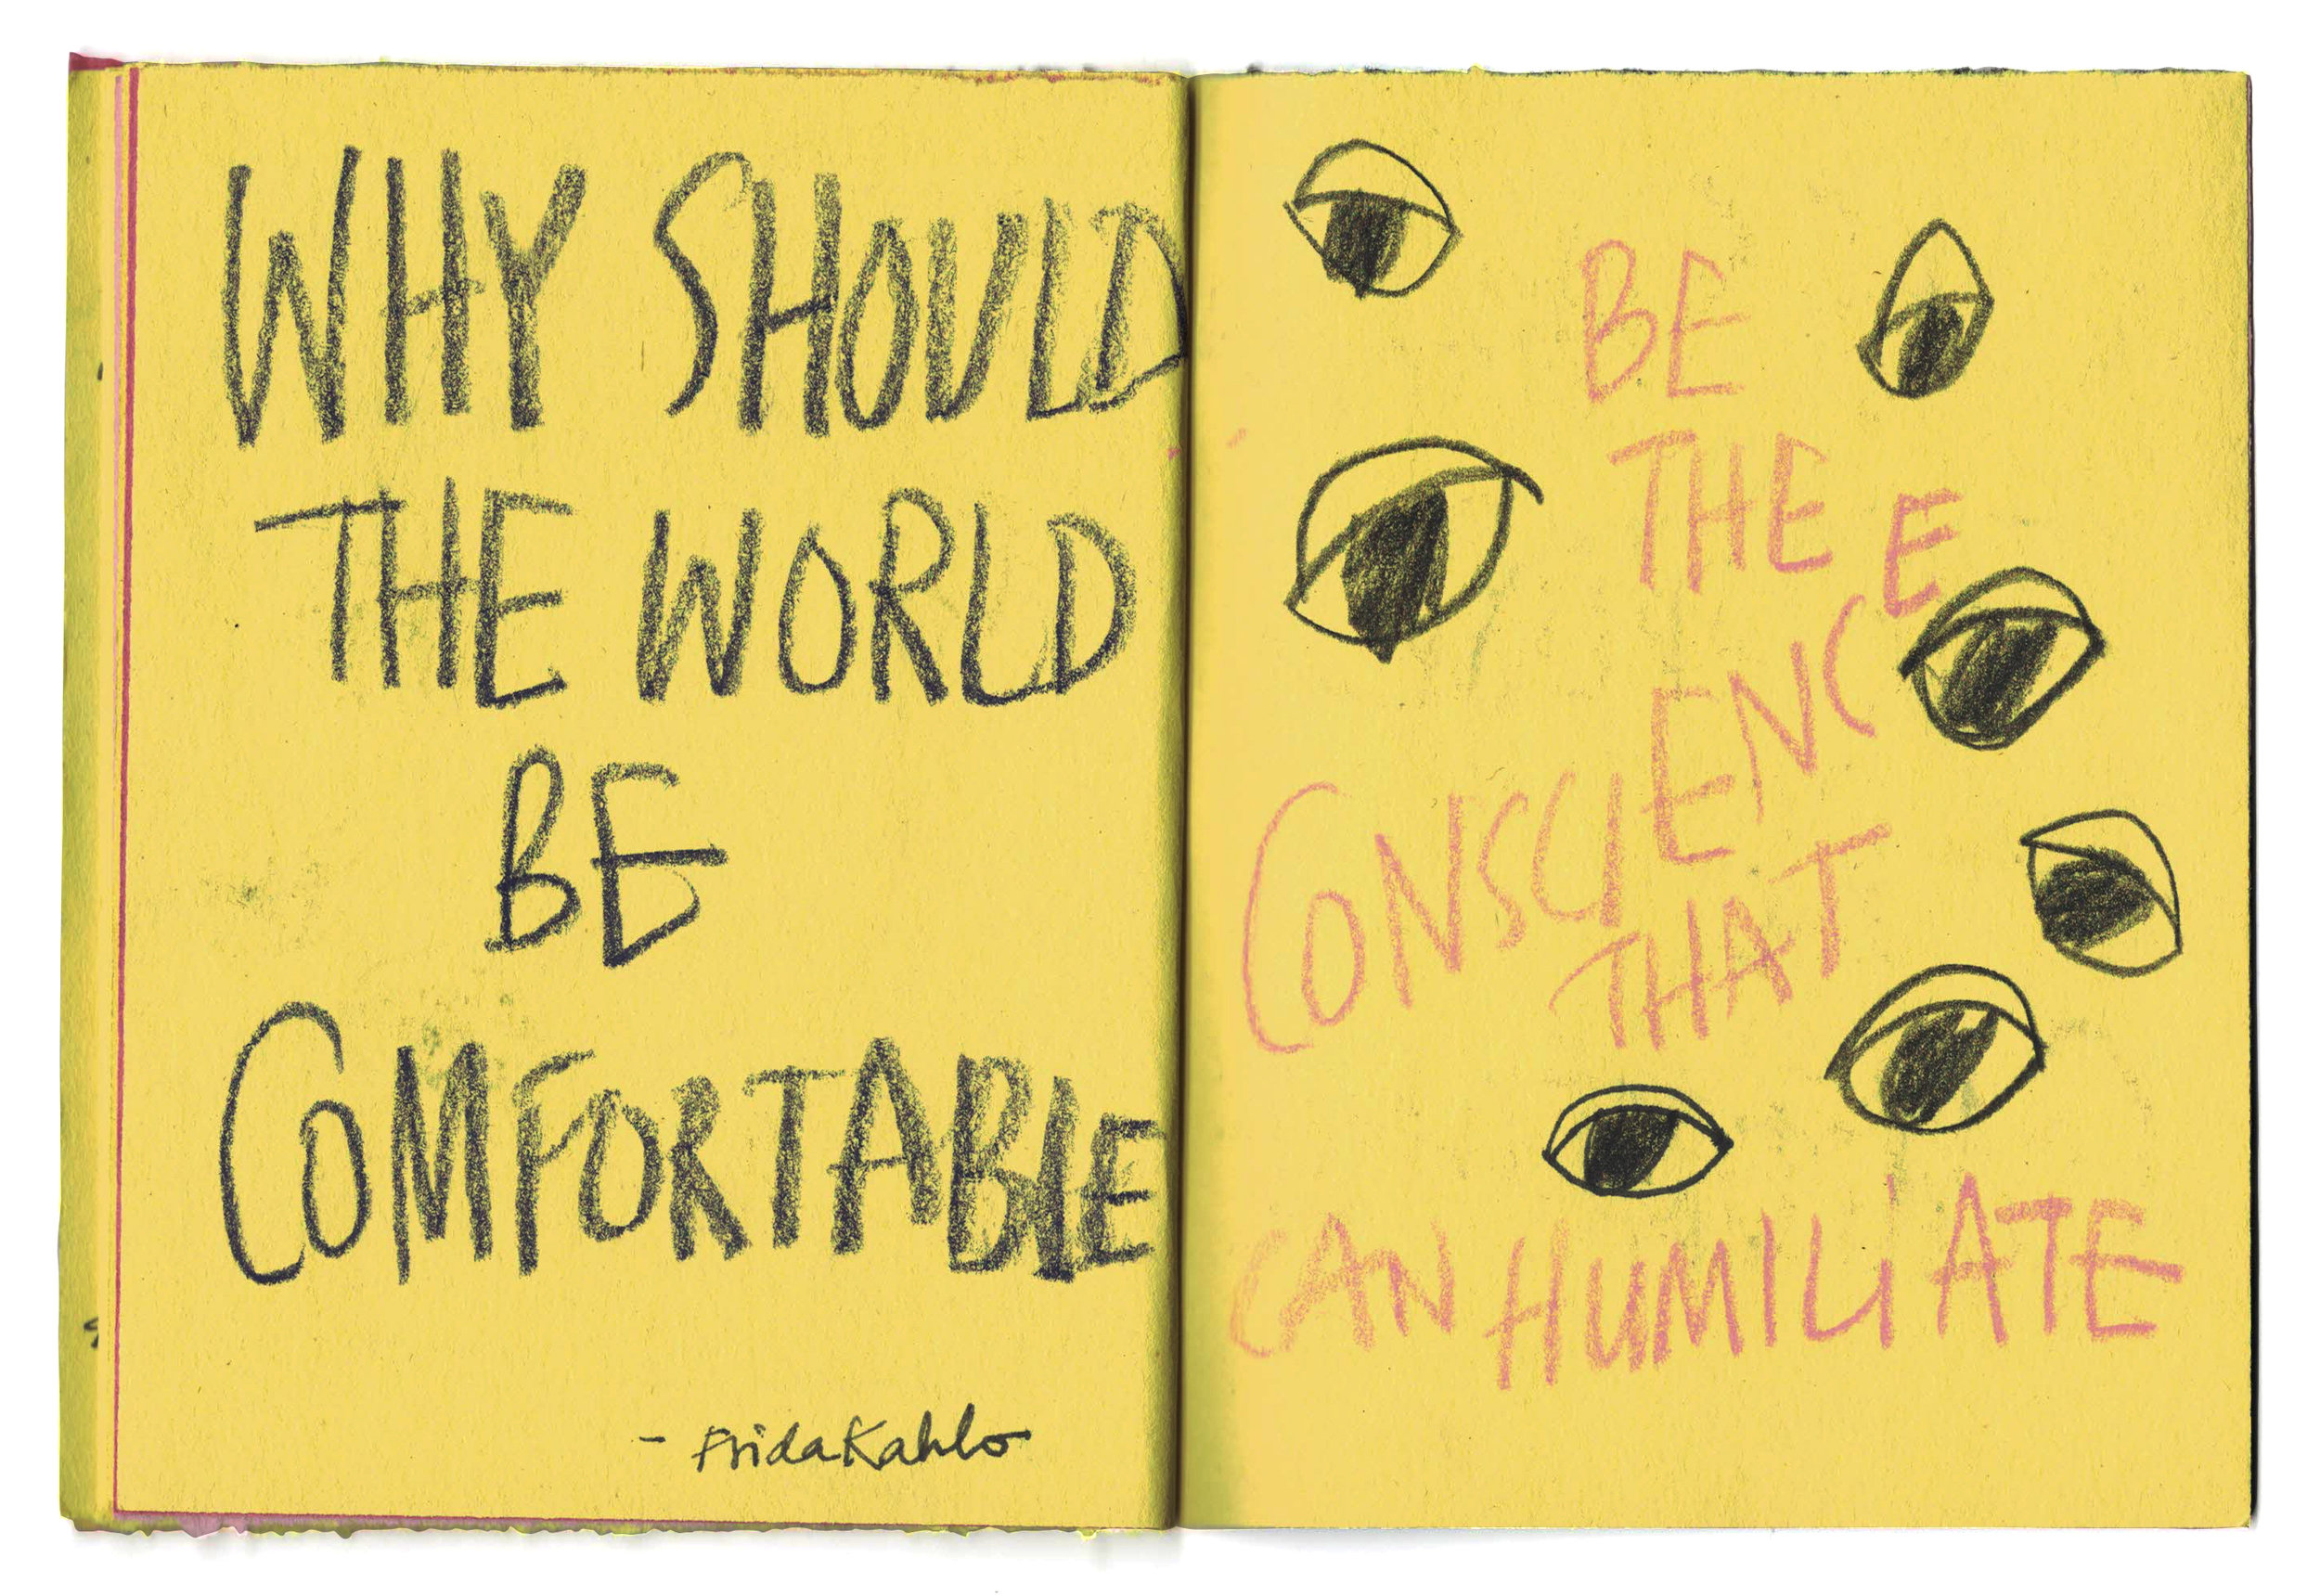 WHY SHOULD
THE WORLD
BE
COMFORTABLE
- Frida Kahlo
BE
THE
CONSCIENCE
THAT
CAN HUMILIATE